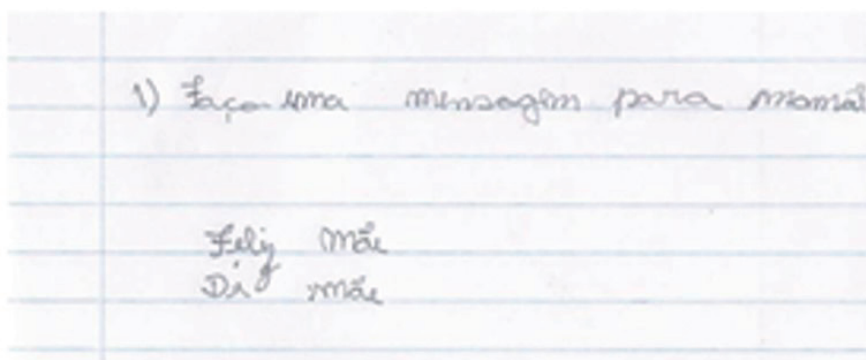 1) Faça uma mensagem para mamã
Feliz Mãe
Di mãe